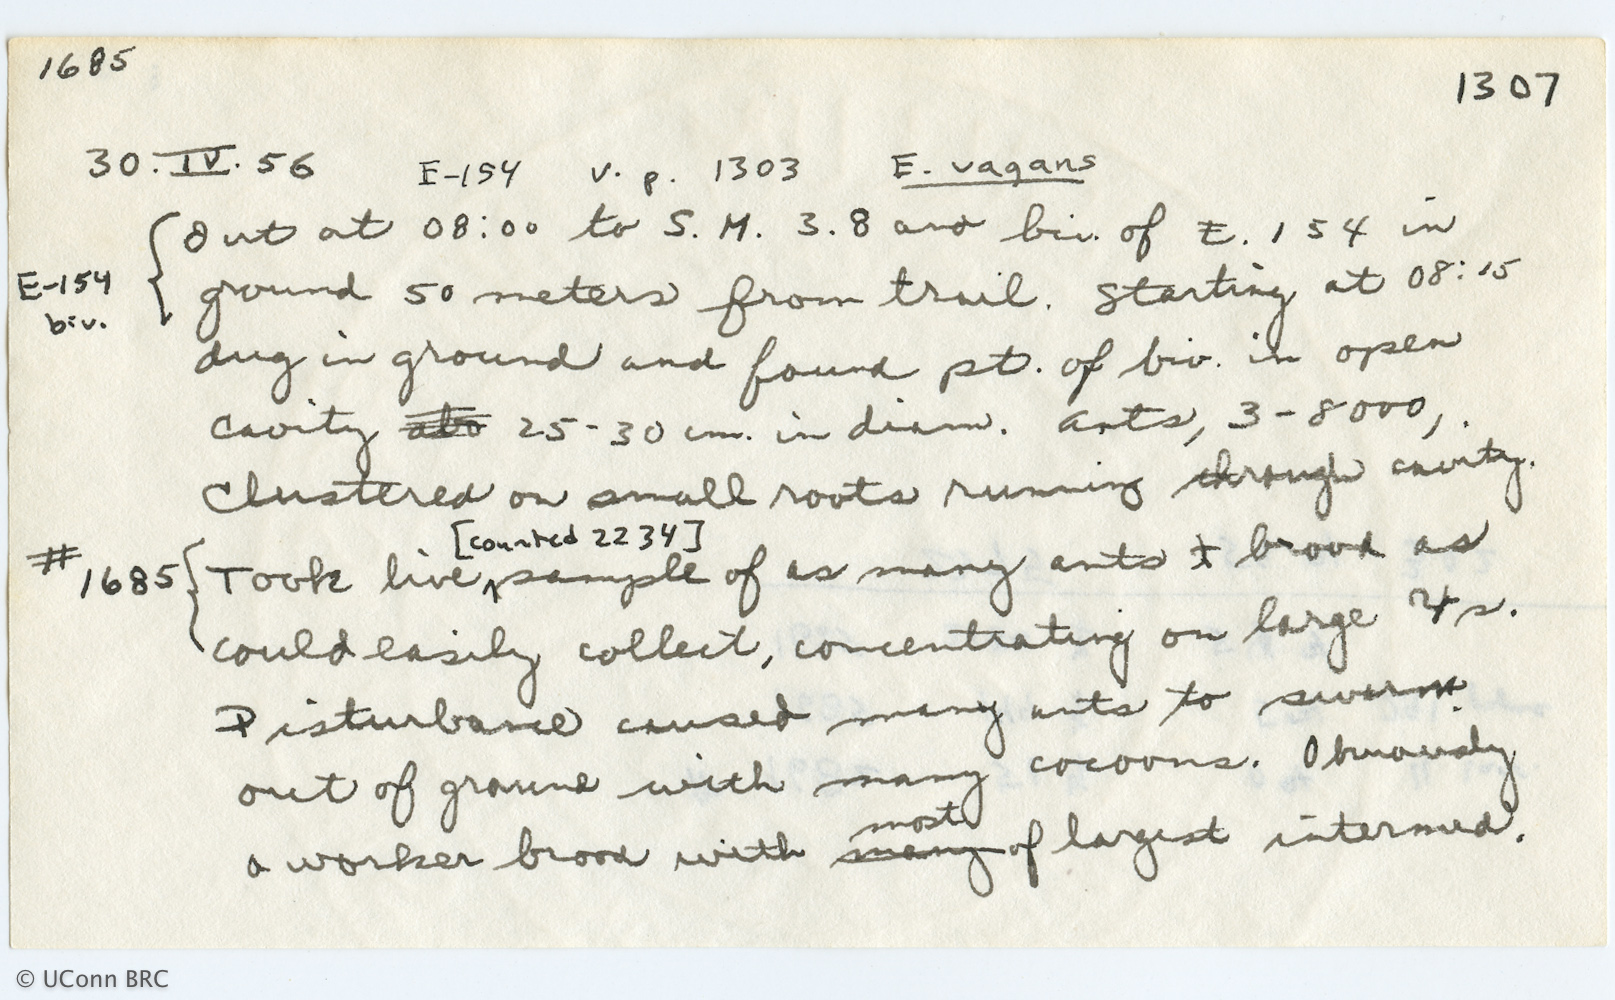 1685
1307
30.IV.56 E-154 v. p. 1303 E. vagans
Out at 08:00 to S. M. 3.8 and biv. of E. 154 in
E-154
biv.
ground 50 meters from trail. Starting at 08:15
dug in ground and found pt. of biv. in open
cavity 25-30 cm. in diam. Ants, 3-8000,
clustered on small roots running through cavity.
[counted 2234]
# 1685 Took live sample of as many ants + brood as
could easily collect, concentrating on large ♀s.
Disturbance caused many ants to swarm
out of ground with many cocoons. Obviously
most
a worker brood with many of largest intermed.
© UConn BRC